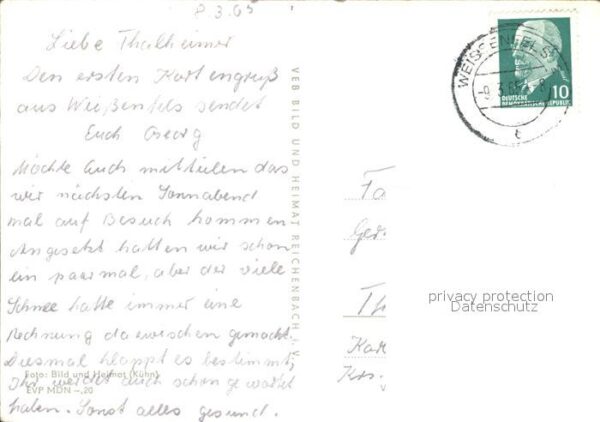 8 3.65
Liebe Thalheimer
Den ersten Kartengruß
aus Weißenfels sendet
Euch Georg
Möchte Euch mitteilen das
wir nächsten Sonnabend
mal auf Besuch kommen
Angesetzt hatten wir schon
ein paarmal, aber der viele
Schnee hatte immer eine
Rechnung dazwischen gemacht.
Diesmal klappt es bestimmt,
Ihr werdet auch schon gewartet
haben. Sonst alles gesund.
Foto: Bild und Heimat (Kühn)
EVP MDN -,20
VEB BILD UND HEIMAT REICHENBACH i. V.
WEISSENFELS
-9.3.65
t
10
DEUTSCHE
DEMOKRATISCHE REPUBLIK
Fa
Ger
Th
Kar
Krs.
privacy protection
Datenschutz